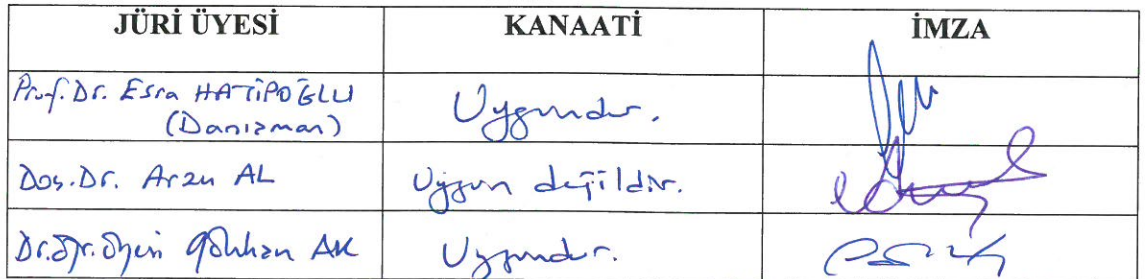 JÜRİ ÜYESİ KANAATİ İMZA
Prof. Dr. Esra HATİPOĞLU
(Danışman) Uygundur.
Doç. Dr. Arzu AL Uygun değildir.
Dr. Öğr. Üyesi Gökhan AK Uygundur.